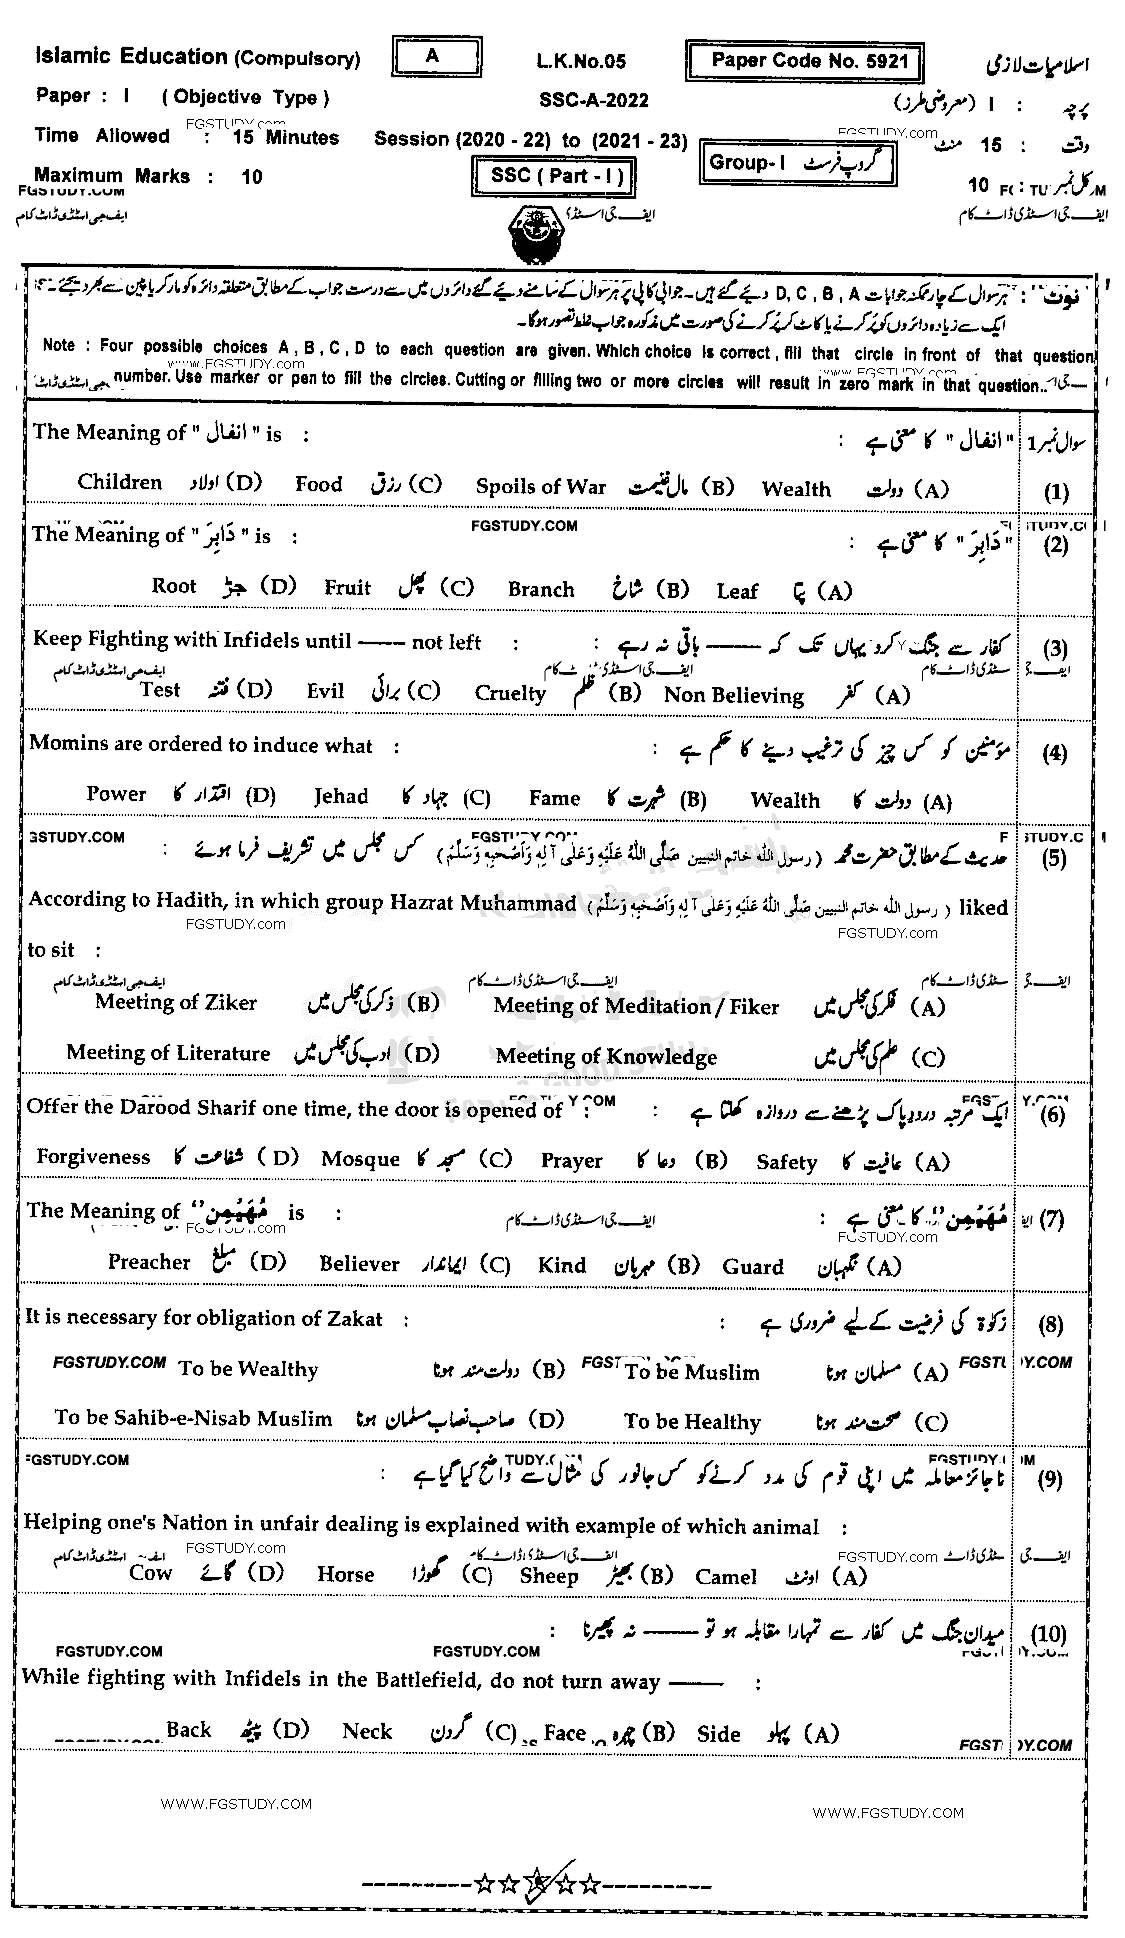 Islamic Education (Compulsory) A L.K.No.05 Paper Code No. 5921 اسلامیات لازمی
Paper : I ( Objective Type ) SSC-A-2022 پرچہ : I (معروضی طرز)
FGSTUDY.com
Time Allowed : 15 Minutes Session (2020 - 22) to (2021 - 23) FGSTUDY.com وقت : 15 منٹ
Maximum Marks : 10 SSC ( Part - I ) Group- I گروپ فرسٹ کل نمبر : 10
FGSTUDY.COM
ایف جی اسٹڈی ڈاٹ کام ایف جی اسٹڈی ایف جی اسٹڈی ڈاٹ کام
نوٹ : ہر سوال کے چار ممکنہ جوابات D, C, B, A دیئے گئے ہیں۔ جوابی کاپی پر ہر سوال کے سامنے دیئے گئے دائروں میں سے درست جواب کے مطابق متعلقہ دائرہ کو مارکر یا پین سے بھر دیجئے۔
ایک سے زیادہ دائروں کو پُر کرنے یا کاٹ کر پُر کرنے کی صورت میں مذکورہ جواب غلط تصور ہوگا۔
Note : Four possible choices A , B , C , D to each question are given. Which choice is correct , fill that circle in front of that question
www.FGSTUDY.com
number. Use marker or pen to fill the circles. Cutting or filling two or more circles will result in zero mark in that question..
www.FGSTUDY.com
The Meaning of " انفال " is : " انفال " کا معنی ہے : سوال نمبر 1
Children اولاد (D) Food رزق (C) Spoils of War مال غنیمت (B) Wealth دولت (A) (1)
FGSTUDY.COM
The Meaning of " دَابِرَ " is : " دَابِرَ " کا معنی ہے : (2)
Root جڑ (D) Fruit پھل (C) Branch شاخ (B) Leaf پتا (A)
Keep Fighting with Infidels until —— not left : کفار سے جنگ کرو یہاں تک کہ —— باقی نہ رہے : (3)
ایف جی اسٹڈی ڈاٹ کام
Test فتنہ (D) Evil برائی (C) Cruelty ظلم (B) Non Believing کفر (A)
Momins are ordered to induce what : مؤمنین کو کس چیز کی ترغیب دینے کا حکم ہے : (4)
Power اقتدار کا (D) Jehad جہاد کا (C) Fame شہرت کا (B) Wealth دولت کا (A)
FGSTUDY.COM
حدیث کے مطابق حضرت محمد ( رسول اللہ خاتم النبیین صَلَّی اللہُ عَلَیْہِ وَعَلٰی آلِہٖ وَاَصْحٰبِہٖ وَسَلَّمَ ) کس مجلس میں تشریف فرما ہوئے : (5)
According to Hadith, in which group Hazrat Muhammad ( رسول اللہ خاتم النبیین صَلَّی اللہُ عَلَیْہِ وَعَلٰی آلِہٖ وَاَصْحٰبِہٖ وَسَلَّمَ ) liked
FGSTUDY.com FGSTUDY.com
to sit :
ایف جی اسٹڈی ڈاٹ کام ایف جی اسٹڈی ڈاٹ کام
Meeting of Ziker ذکر کی مجلس میں (B) Meeting of Meditation / Fiker فکر کی مجلس میں (A)
Meeting of Literature ادب کی مجلس میں (D) Meeting of Knowledge علم کی مجلس میں (C)
Offer the Darood Sharif one time, the door is opened of : ایک مرتبہ درود پاک پڑھنے سے دروازہ کھلتا ہے : (6)
Forgiveness شفاعت کا ( D) Mosque مسجد کا (C) Prayer دعا کا (B) Safety عافیت کا (A)
The Meaning of "مُهَيْمِن" is : "مُهَيْمِن" کا معنی ہے : (7)
FGSTUDY.com ایف جی اسٹڈی ڈاٹ کام FGSTUDY.com
Preacher مبلغ (D) Believer ایماندار (C) Kind مہربان (B) Guard نگہبان (A)
It is necessary for obligation of Zakat : زکوٰۃ کی فرضیت کے لیے ضروری ہے : (8)
FGSTUDY.COM To be Wealthy دولت مند ہونا (B) To be Muslim مسلمان ہونا (A)
To be Sahib-e-Nisab Muslim صاحب نصاب مسلمان ہونا (D) To be Healthy صحت مند ہونا (C)
ناجائز معاملہ میں اپنی قوم کی مدد کرنے کو کس جانور کی مثال سے واضح کیا گیا ہے : (9)
Helping one's Nation in unfair dealing is explained with example of which animal :
FGSTUDY.com ایف جی اسٹڈی ڈاٹ کام FGSTUDY.com
Cow گائے (D) Horse گھوڑا (C) Sheep بھیڑ (B) Camel اونٹ (A)
میدان جنگ میں کفار سے تمہارا مقابلہ ہو تو —— نہ پھیرنا : (10)
FGSTUDY.COM FGSTUDY.COM
While fighting with Infidels in the Battlefield, do not turn away —— :
Back پیٹھ (D) Neck گردن (C) Face چہرہ (B) Side پہلو (A)
WWW.FGSTUDY.COM WWW.FGSTUDY.COM